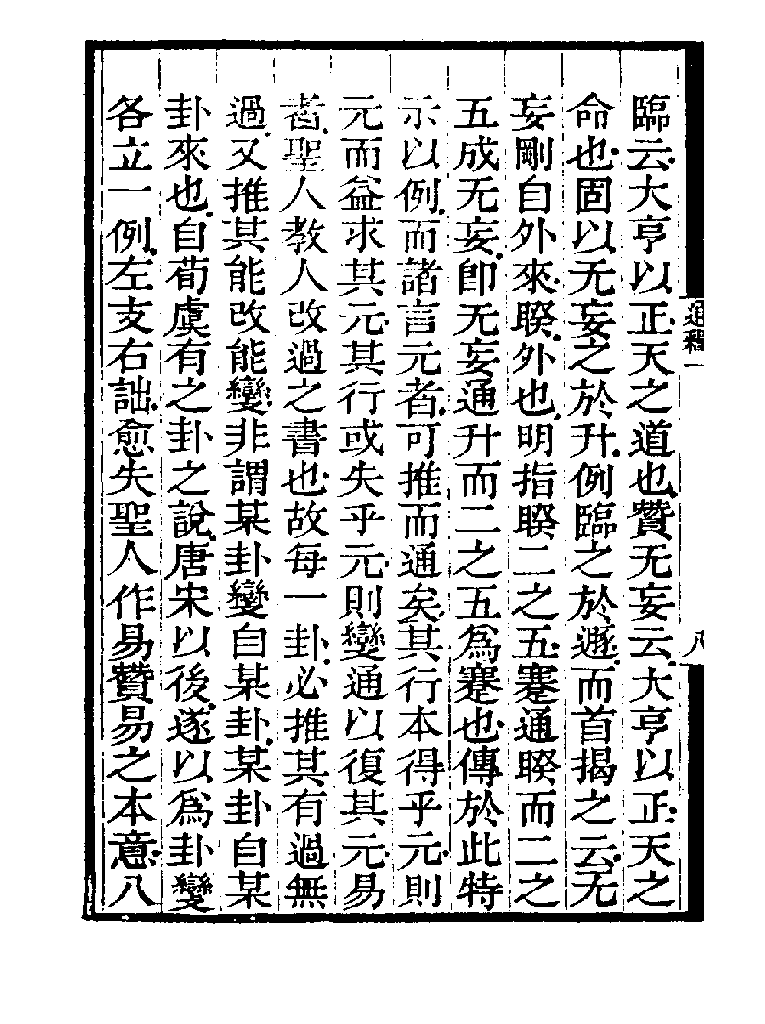 臨云大亨以正天之道也贊无妄云大亨以正天之
命也固以无妄之於升例臨之於遯而首揭之云无
妄剛自外來睽外也明指睽二之五蹇通睽而二之
五成无妄卽无妄通升而二之五爲蹇也傳於此特
示以例而諸言元者可推而通矣其行本得乎元則
元而益求其元其行或失乎元則變通以復其元易
者聖人教人改過之書也故每一卦必推其有過無
過又推其能改能變非謂某卦變自某卦某卦自某
卦來也自荀虞有之卦之說唐宋以後遂以爲卦變
各立一例左支右詘愈失聖人作易贊易之本意八
通釋一
八